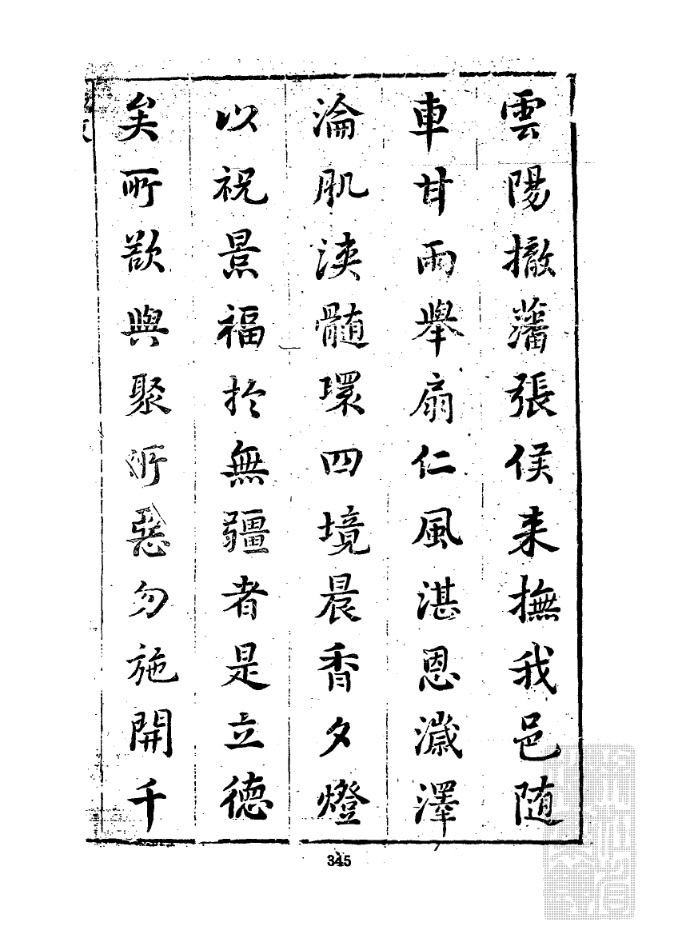 雲陽撤藩張侯来撫我邑随
車甘雨舉扇仁風湛恩濊澤
淪肌浹髓環四境晨香夕燈
以祝景福於無疆者是立德
矣所欲與聚所惡勿施開千
345